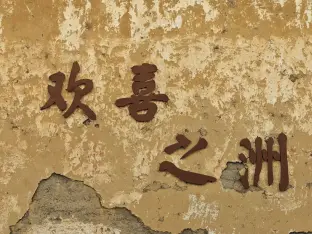 欢喜
之洲